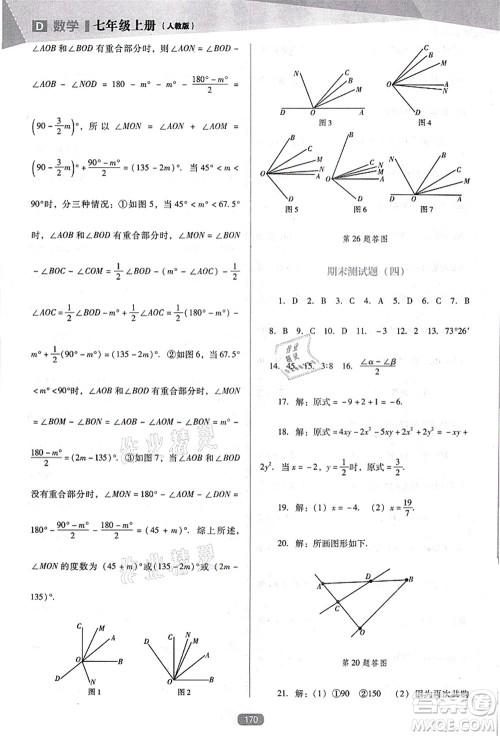 D 数学 七年级上册（人教版）
∠AOB 和∠BOD 有重合部分时，则∠AON =
∠AOB - ∠NOD = 180 - m° - (90°-m°)/2 =
(90 - 3/2 m)°，所以 ∠MON = ∠AON + ∠AOM =
(90 - 3/2 m)° + (90°-m°)/2 = (135 - 2m)°. 当 45° < m° <
90°时，分三种情况：①如图 5，当 45° < m° < 67.5°
时，∠AOB 和∠BOD 有重合部分时，∠MON =
∠BOC - ∠AOC = 1/2∠BOD - (m° - ∠AOC) = 1/2∠BOD
- m° + 1/2(90° - m°) = (135 - 2m)°. ②如图 6，当 67.5°
< m° < 90°时，∠AOB 和∠BOD 有重合部分时，∠MON
= ∠BOM - ∠BON = ∠AOB - ∠AOM - ∠BON = m° -
(180° - m°)/2 = (2m - 135)°. ③如图 7，当∠AOB 和∠BOD
没有重合部分时，∠MON = 180° - ∠AOM - ∠DON =
180° - (90°-m°)/2 - (180°-m°)/2 = (45 + m)°. 综上所述，
∠MON 的度数为 (45 + m)°或(135 - 2m)°或(2m -
135)°.
C M A O B N
图 1
D C N M A O B
图 2
N B M D O A
图 3
B M A O D
图 4
B M N A O D
图 5
图 6
N B M D O A
图 7
第 26 题答图
期末测试题（四）
1. D 2. B 3. C 4. A 5. C 6. D 7. C
8. B 9. C 10. C 11. D 12. A 13. 73°26′
14. 45 15. 3:8 16. (∠α - ∠β)/2
17. 解：原式 = -9 + 2 + 1 = -6.
18. 解：原式 = 4xy - 2x² - 5xy + 2x² + 2y² = -xy +
2y². 当 x = -2，y = 1/2 时，原式 = 3/2.
19. 解：(1) x = -4. (2) x = 19/7.
20. 解：所画图形如下.
A D B C O
第 20 题答图
21. 解：(1) ①90 ②150 (2) 因为再次共购
170